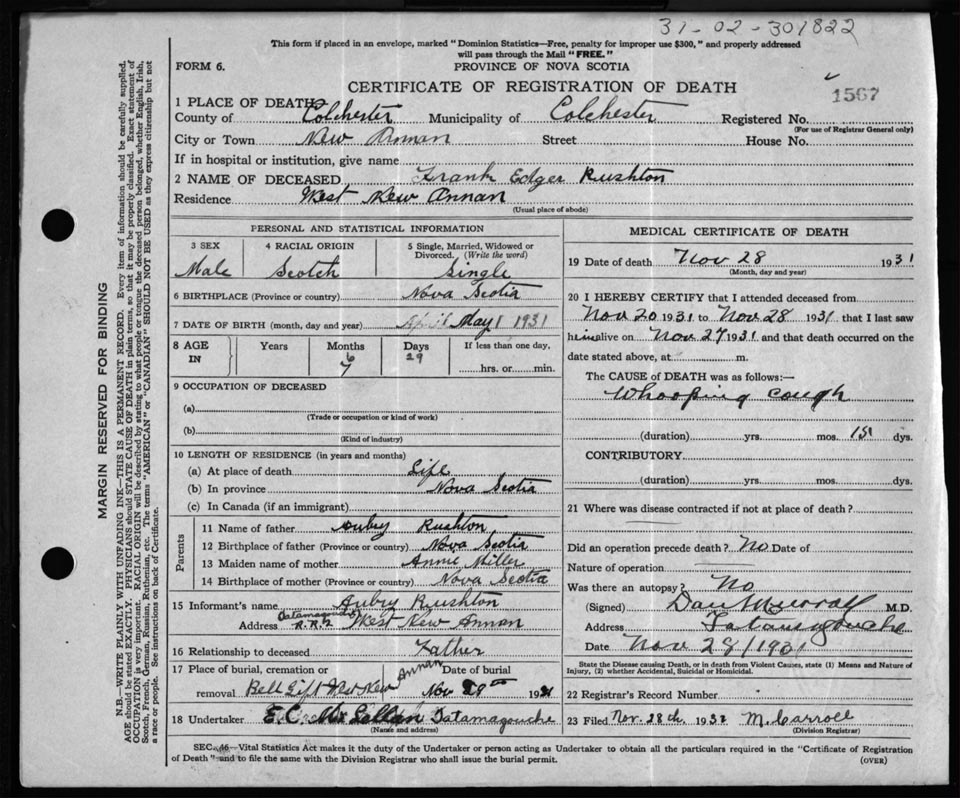 31-02-301822
This form if placed in an envelope, marked "Dominion Statistics—Free, penalty for improper use $300," and properly addressed
will pass through the Mail "FREE."
FORM 6.
PROVINCE OF NOVA SCOTIA
CERTIFICATE OF REGISTRATION OF DEATH
1567
1 PLACE OF DEATH
County of Colchester Municipality of Colchester Registered No.
(For use of Registrar General only)
City or Town New Annan Street House No.
If in hospital or institution, give name
2 NAME OF DECEASED Frank Edger Rushton
Residence West New Annan
(Usual place of abode)
PERSONAL AND STATISTICAL INFORMATION
3 SEX 4 RACIAL ORIGIN 5 Single, Married, Widowed or
Divorced. (Write the word)
Male Scotch Single
6 BIRTHPLACE (Province or country) Nova Scotia
7 DATE OF BIRTH (month, day and year) April May 1 1931
8 AGE IN Years Months Days If less than one day,
6 29
7 hrs. or min.
9 OCCUPATION OF DECEASED
(a)
(Trade or occupation or kind of work)
(b)
(Kind of industry)
10 LENGTH OF RESIDENCE (in years and months)
(a) At place of death Life
(b) In province Nova Scotia
(c) In Canada (if an immigrant)
Parents
11 Name of father Aubry Rushton
12 Birthplace of father (Province or country) Nova Scotia
13 Maiden name of mother Annie Miller
14 Birthplace of mother (Province or country) Nova Scotia
15 Informant's name Aubry Rushton
Address Tatamagouche R.R.2 West New Annan
16 Relationship to deceased Father
17 Place of burial, cremation or Date of burial
removal West New Annan Nov 1931
18 Undertaker E.C. McLellan Tatamagouche
(Name and address)
MEDICAL CERTIFICATE OF DEATH
19 Date of death Nov 28 1931
(Month, day and year)
20 I HEREBY CERTIFY that I attended deceased from
Nov 20 1931 to Nov 28 1931 that I last saw
him alive on Nov 27 1931 and that death occurred on the
date stated above, at m.
The CAUSE of DEATH was as follows:—
Whooping cough
(duration) yrs. mos. 15 dys.
CONTRIBUTORY
(duration) yrs. mos. dys.
21 Where was disease contracted if not at place of death?
Did an operation precede death? No Date of
Nature of operation
Was there an autopsy? No
(Signed) Dan Murray M.D.
Address Tatamagouche
Date Nov 28/1931
State the Disease causing Death, or in death from Violent Causes, state (1) Means and Nature of
Injury, (2) whether Accidental, Suicidal or Homicidal.
22 Registrar's Record Number
23 Filed Nov. 28th 1931 M. Carroll
(Division Registrar)
SEC. 46—Vital Statistics Act makes it the duty of the Undertaker or person acting as Undertaker to obtain all the particulars required in the "Certificate of Registration
of Death" and to file the same with the Division Registrar who shall issue the burial permit.
(OVER)
MARGIN RESERVED FOR BINDING
N.B.—WRITE PLAINLY WITH UNFADING INK—THIS IS A PERMANENT RECORD. Every item of information should be carefully supplied.
AGE should be stated EXACTLY. PHYSICIANS should STATE CAUSE OF DEATH in plain terms, so that it may be properly classified. Exact statement of
OCCUPATION is very important. RACIAL ORIGIN will be described by stating to what people or tongue the deceased person belonged, whether English, Irish,
Scotch, French, German, Russian, Ruthenian, etc. The terms "AMERICAN" or "CANADIAN" SHOULD NOT BE USED as they express citizenship but not
a race or people. See instructions on back of Certificate.